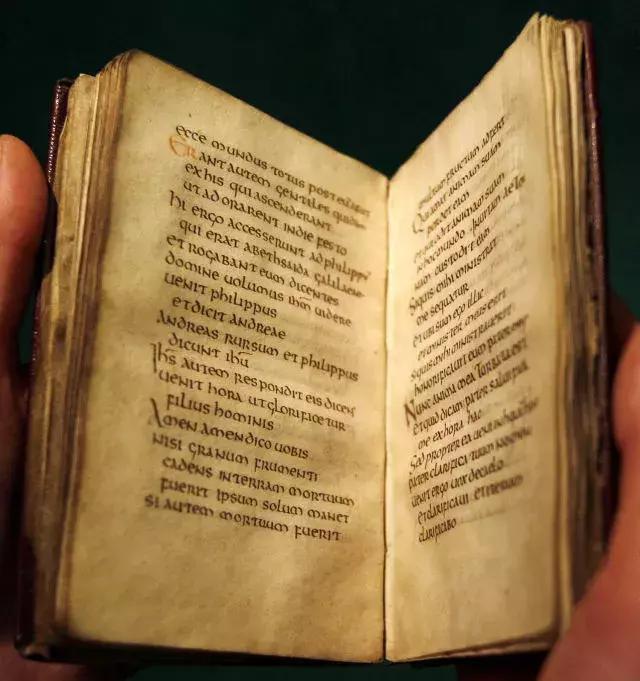 ecce mundus totus post eum abiit
Erant autem gentiles quidam
ex his qui ascenderant
ut adorarent in die festo
hi ergo accesserunt ad philippū
qui erat a bethsaida galilaeae
et rogabant eum dicentes
domine uolumus ihm uidere
uenit philippus
et dicit andreae
andreas rursum et philippus
dicunt ihu
Ihs autem respondit eis dicens
uenit hora ut glorificetur
filius hominis
Amen amen dico uobis
nisi granum frumenti
cadens in terram mortuum
fuerit ipsum solum manet
si autem mortuum fuerit
multum fructum adfert
Qui amat animam suam
perdet eam
et qui odit animam suam
in hoc mundo in uitam aeternam
custodit eam
Si quis mihi ministrat
me sequatur
et ubi sum ego illic
et minister meus erit
Si quis mihi ministrauerit
honorificabit eum pater meus
Nunc anima mea turbata est
Et quid dicam pater saluifica
me ex hora hac
Sed propterea ueni in horam hanc
pater clarifica tuum nomen
uenit ergo uox de caelo
et clarificaui et iterum
clarificabo